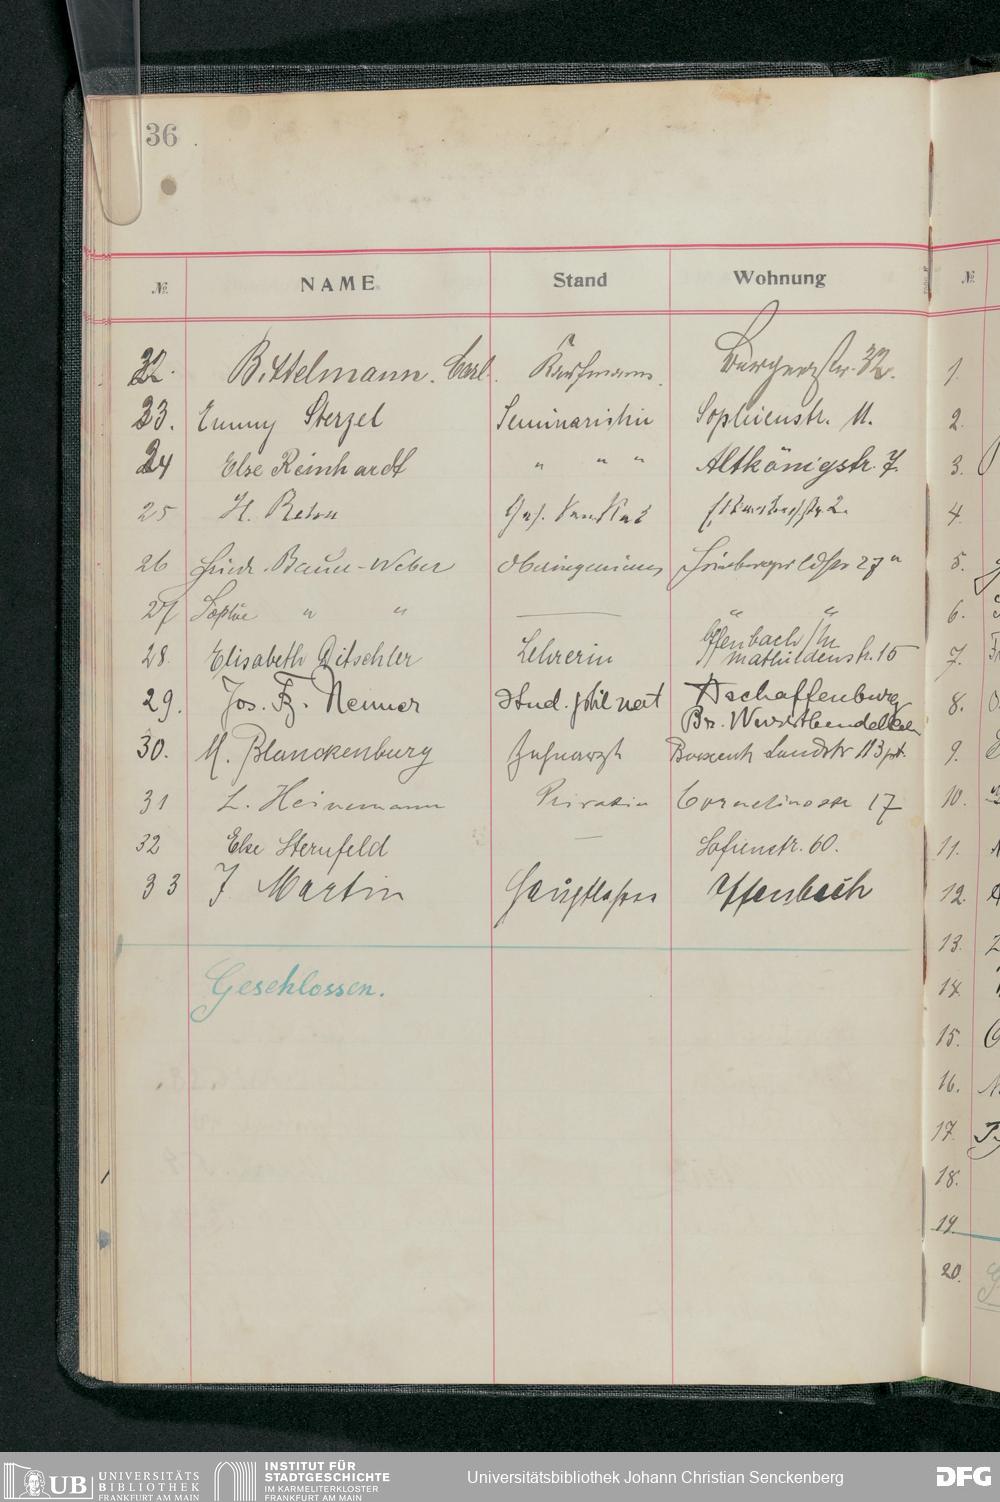 36
№ NAME Stand Wohnung
22. Bittelmann. Carl. Kaufmann. Burgerstr. 32.
23. Emmy Sterzel Seminaristin Sophienstr. 11.
24 Else Reinhardt " " " Altkönigstr. 7.
25 H.
26 Friedr. Bauer-Weber Oberingenieur 27 "
27 Sophie " " — " "
28. Elisabeth Ditschler Lehrerin Offenbach /M
Mathildenstr. 15
29. Jos. Fz. Neimer Stud. phil nat Aschaffenburg
30. M. Blanckenburg Zahnarzt Landstr 113 pt.
31 L. Heinemann Privatin Corneliusstr 17
32 Else Sternfeld — Sofienstr. 60.
33 J. Martin Offenbach
Geschlossen.
№
1.
2.
3.
4.
5.
6.
7.
8.
9.
10.
11.
12.
13.
14.
15.
16.
17.
18.
19.
20.
UB UNIVERSITÄTS
BIBLIOTHEK
FRANKFURT AM MAIN
INSTITUT FÜR
STADTGESCHICHTE
IM KARMELITERKLOSTER
FRANKFURT AM MAIN
Universitätsbibliothek Johann Christian Senckenberg
DFG